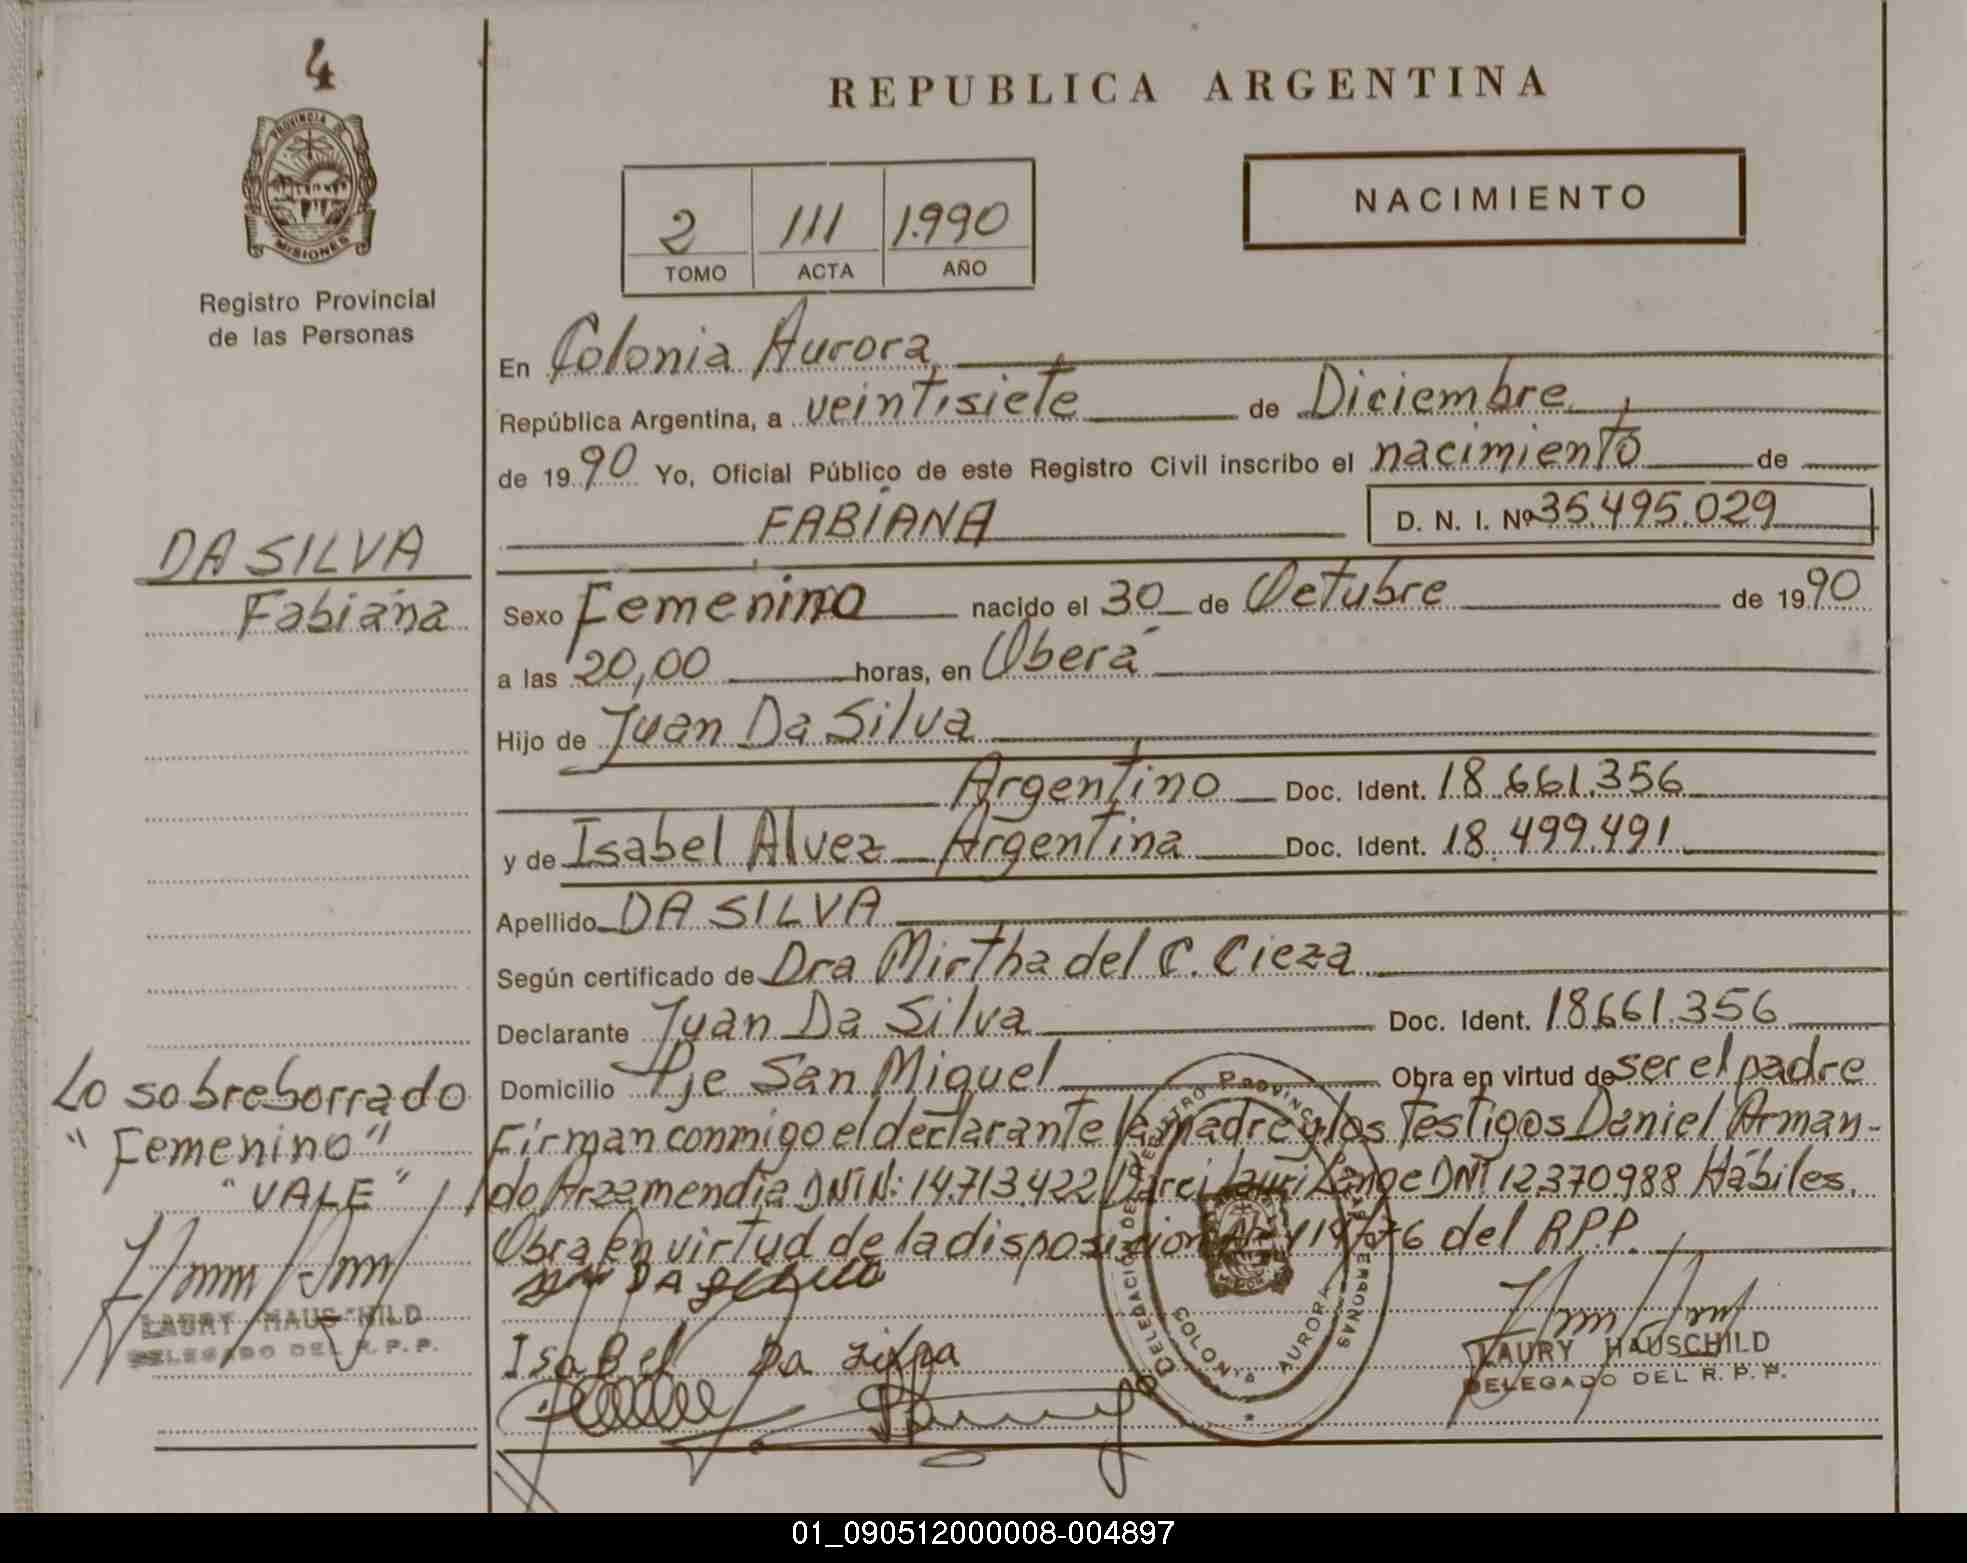 4
PROVINCIA DE
MISIONES
Registro Provincial
de las Personas
REPUBLICA ARGENTINA
NACIMIENTO
2 111 1.990
TOMO ACTA AÑO
En Colonia Aurora
República Argentina, a veintisiete de Diciembre
de 1990 Yo, Oficial Público de este Registro Civil inscribo el nacimiento de
FABIANA D. N. I. Nº 35.495.029
DA SILVA
Fabiana
Sexo Femenino nacido el 30 de Octubre de 1990
a las 20,00 horas, en Oberá
Hijo de Juan Da Silva
Argentino Doc. Ident. 18.661.356
y de Isabel Alvez Argentina Doc. Ident. 18.499.491
Apellido DA SILVA
Según certificado de Dra Mirtha del C. Cieza
Declarante Juan Da Silva Doc. Ident. 18661.356
Domicilio Pje San Miguel Obra en virtud de ser el padre
Firman conmigo el declarante la madre y los testigos Daniel Arman-
do Arzamendia DNI N: 14.713.422 Lange DNI 12.370988 Hábiles.
Obra en virtud de la disposición del RPP.
Lo sobreborrado
"Femenino"
"VALE"
LAURY HAUSCHILD
DELEGADO DEL R. P. P.
DA
Isabel Da Silva
DELEGACIÓN DEL REGISTRO PROVINCIAL DE LAS PERSONAS
COLONIA AURORA
LAURY HAUSCHILD
DELEGADO DEL R. P. P.
01_090512000008-004897